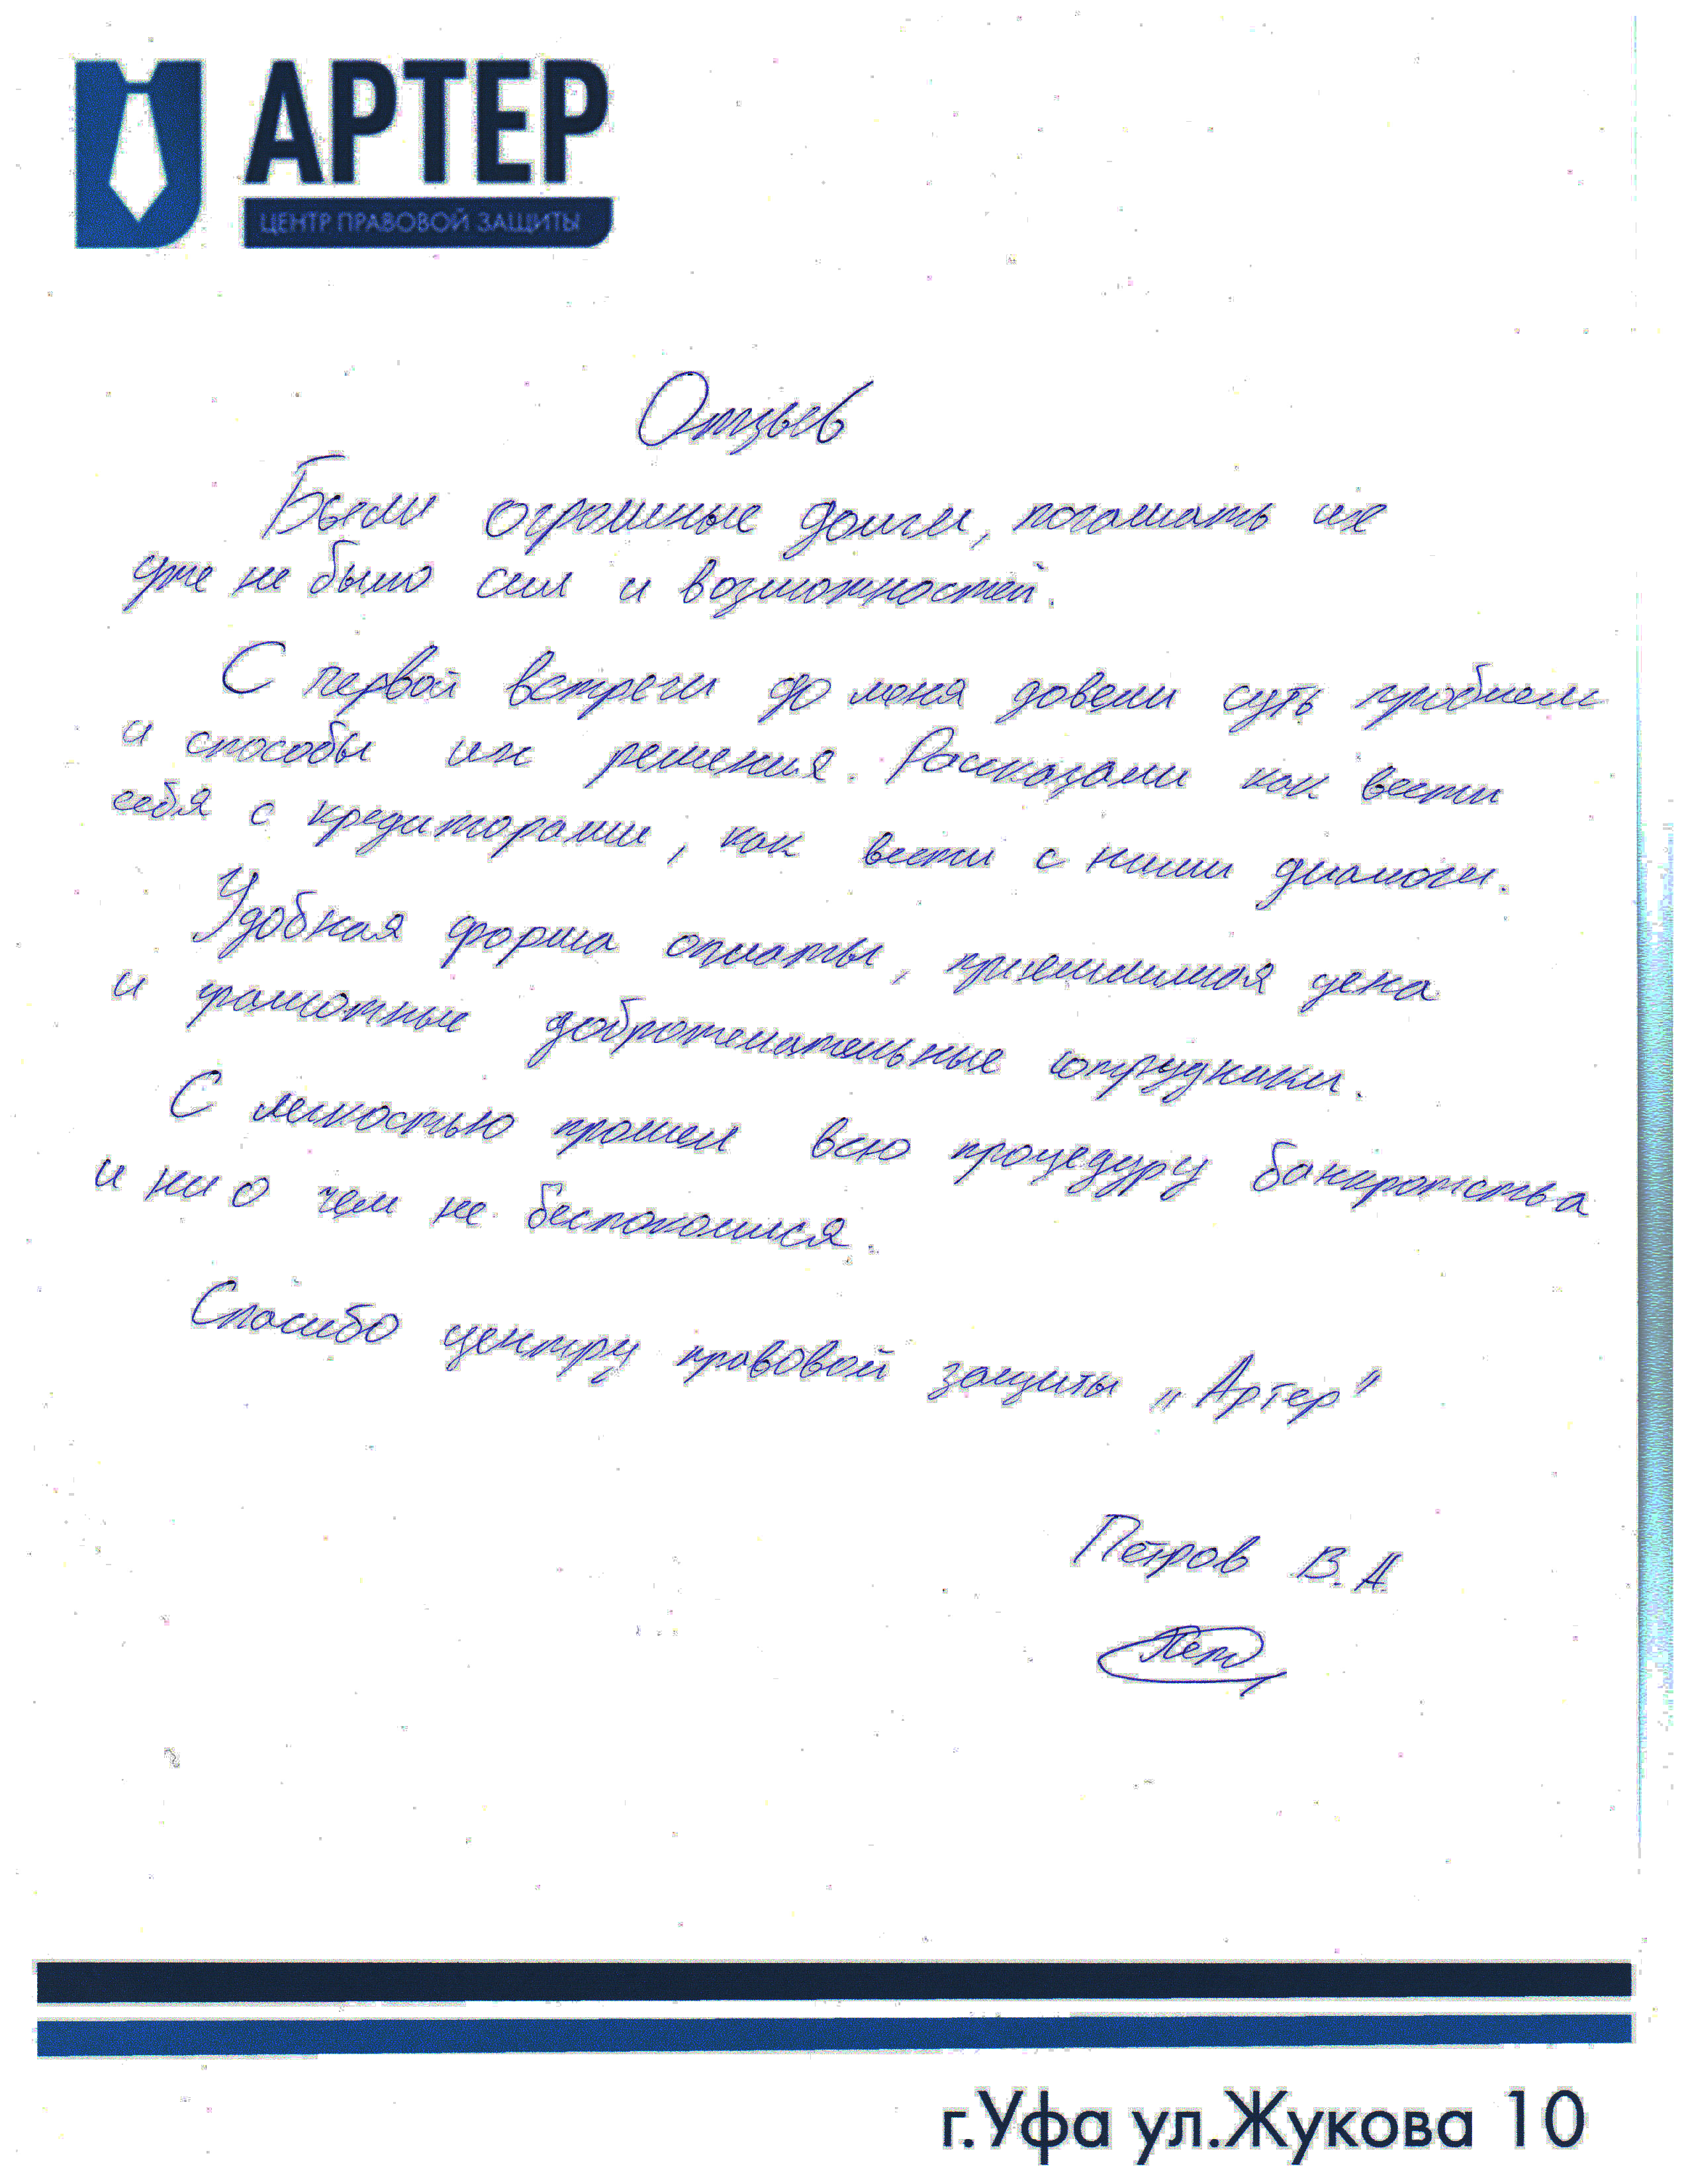 АРТЕР
ЦЕНТР ПРАВОВОЙ ЗАЩИТЫ
Отзыв
Были огромные долги, погашать их
уже не было сил и возможностей.
С первой встречи до меня довели суть проблем
и способы их решения. Рассказали как вести
себя с кредиторами, как вести с ними диалоги.
Удобная форма оплаты, приемлимая цена
и грамотные доброжелательные сотрудники.
С легкостью прошел всю процедуру банкротства
и ни о чем не беспокоился.
Спасибо центру правовой защиты „Артер"
Петров В.А.
Пет
г.Уфа ул.Жукова 10